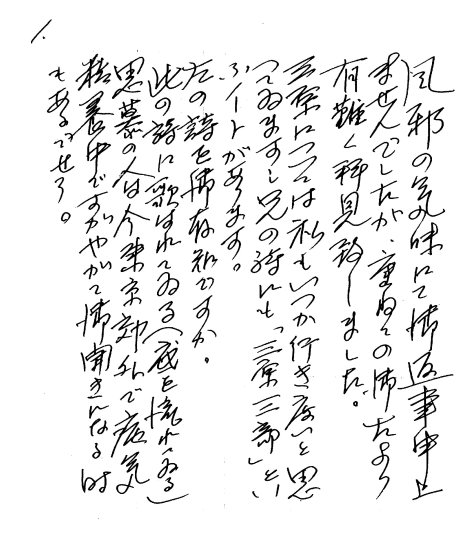 1.
風邪の気味にて御返事申上
ませんでしたが、重ねての御たより
有難く拝見致しました。
三原については私もいつか行き度いと思
つてゐますし兄の詩にも「三原三部」とい
ふノートがあります。
左の詩を御存知ですか。
此の詩に歌はれてゐる(感を憶れゐる)
思慕の人は今東京郊外で病気
静養中ですがやがて御聞きになる時
もあるでせう。